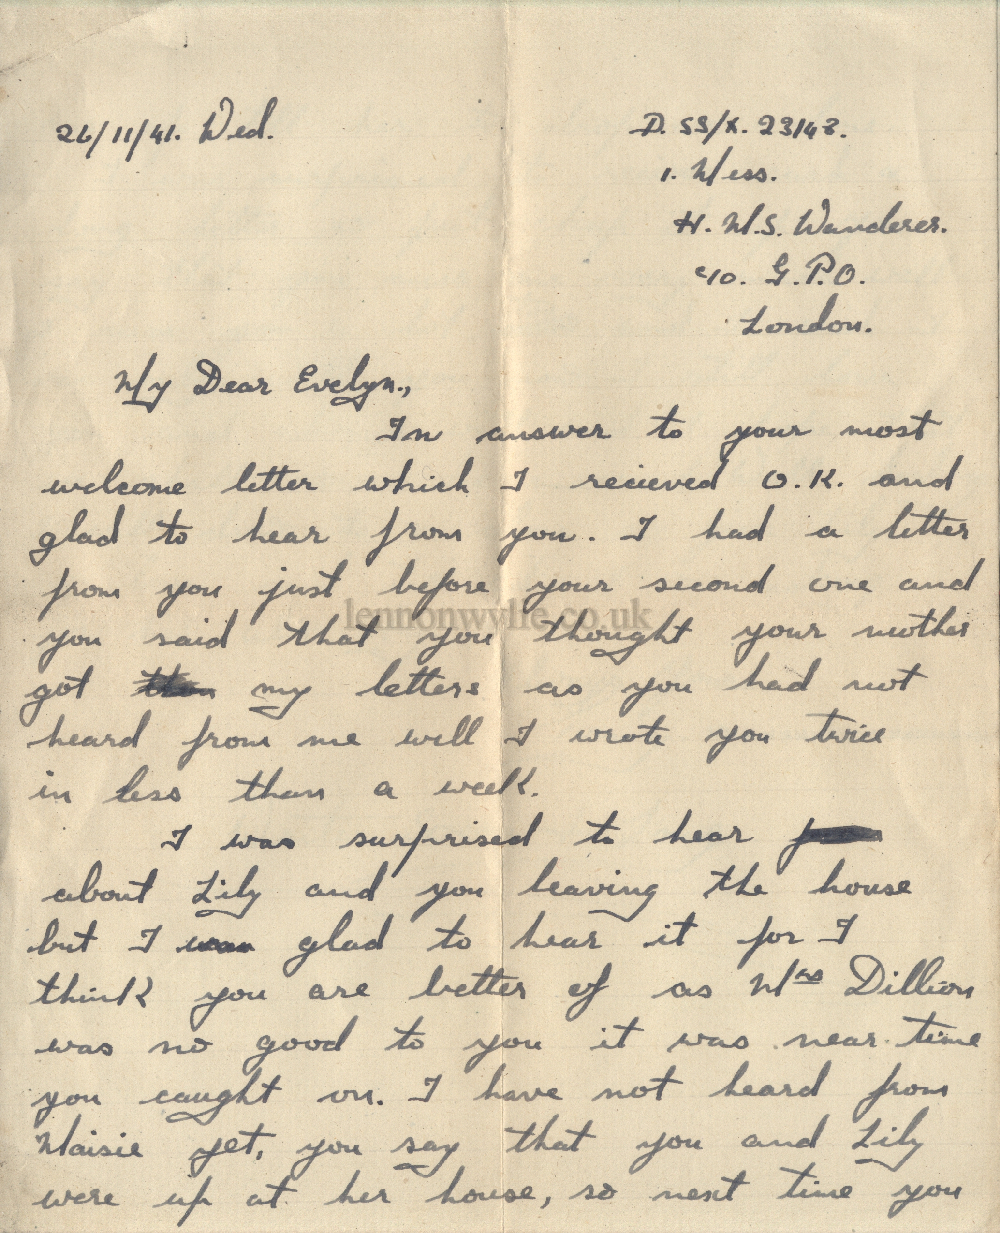 26/11/41. Wed.
D. SS/X. 23148.
1. Mess.
H. M.S. Wanderer.
c/o. G.P.O.
London.
My Dear Evelyn.,
In answer to your most
welcome letter which I recieved O.K. and
glad to hear from you. I had a letter
from you just before your second one and
lennonwylie.co.uk
you said that you thought your mother
got my letters as you had not
heard from me well I wrote you twice
in less than a week.
I was surprised to hear
about Lily and you leaving the house
but I glad to hear it for I
think you are better of as Mrs Dillion
was no good to you it was near time
you caught on. I have not heard from
Maisie yet, you say that you and Lily
were up at her house, so next time you